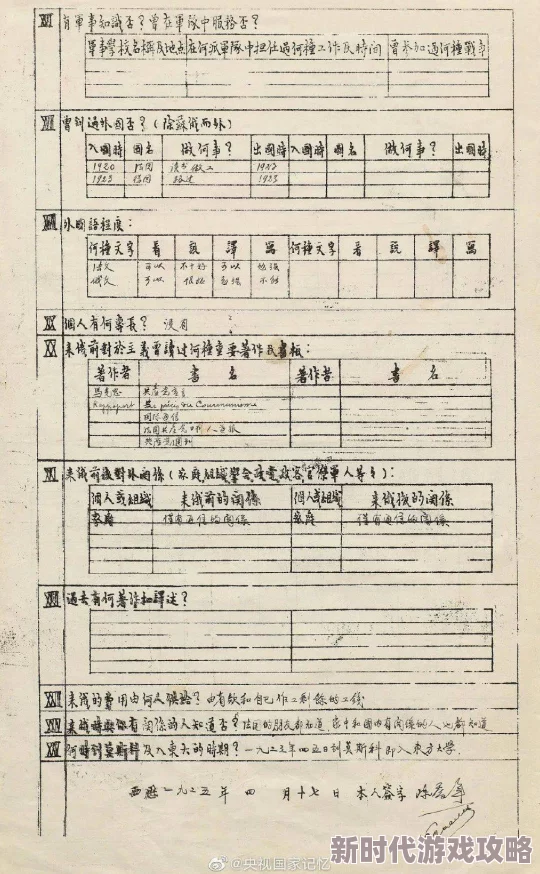 XVI 有軍事知識否？曾在軍隊中服務否？
軍事學校名稱及地点 在何派軍隊中担任過何種工作及時间 曾参加过何種戰爭
XVII 曾到過外国否？(除蘇俄而外)
入國時 國名 做何事？ 出國時 入國時 國名 做何事？ 出國時
1920 法國 读书做工
1923 德國 路过 1923
外國語程度：
何種文字 看 説 譯 寫 何種文字 看 説 譯 寫
法文 可以 不十好 可以 勉强
俄文 可以
XIX 個人有何專長？ 没有
XX 来俄前對於主義曾讀过何種重要著作及書报：
著作者 書名 著作者 書名
馬克思 共產党宣言
Rappoport du Communisme
國际通信
法國共産党
共產党週刊
XXI 来俄前後對外関係(家庭組織學会或党政客官僚軍人等々)：
個人或組織 来俄前的関係 個人或組織 来俄後的関係
家庭 僅有通信的関係 家庭 僅有通信的関係
XXII 過去有何著作和譯述？
XXIII 来俄的費用由何人供給？ 由有款和自己作工剩餘的工钱
XXIV 来俄時與你有関係的人知道否？ 法国的朋友都知道 家中和國内有関係的人也都知道
XXV 何時到莫斯科及入東大的時期？ 一九二三年四五日到莫斯科即入東方大學
西歷一九二五年 四 月十七日 本人簽字
@央视国家记忆
新时代游戏攻略